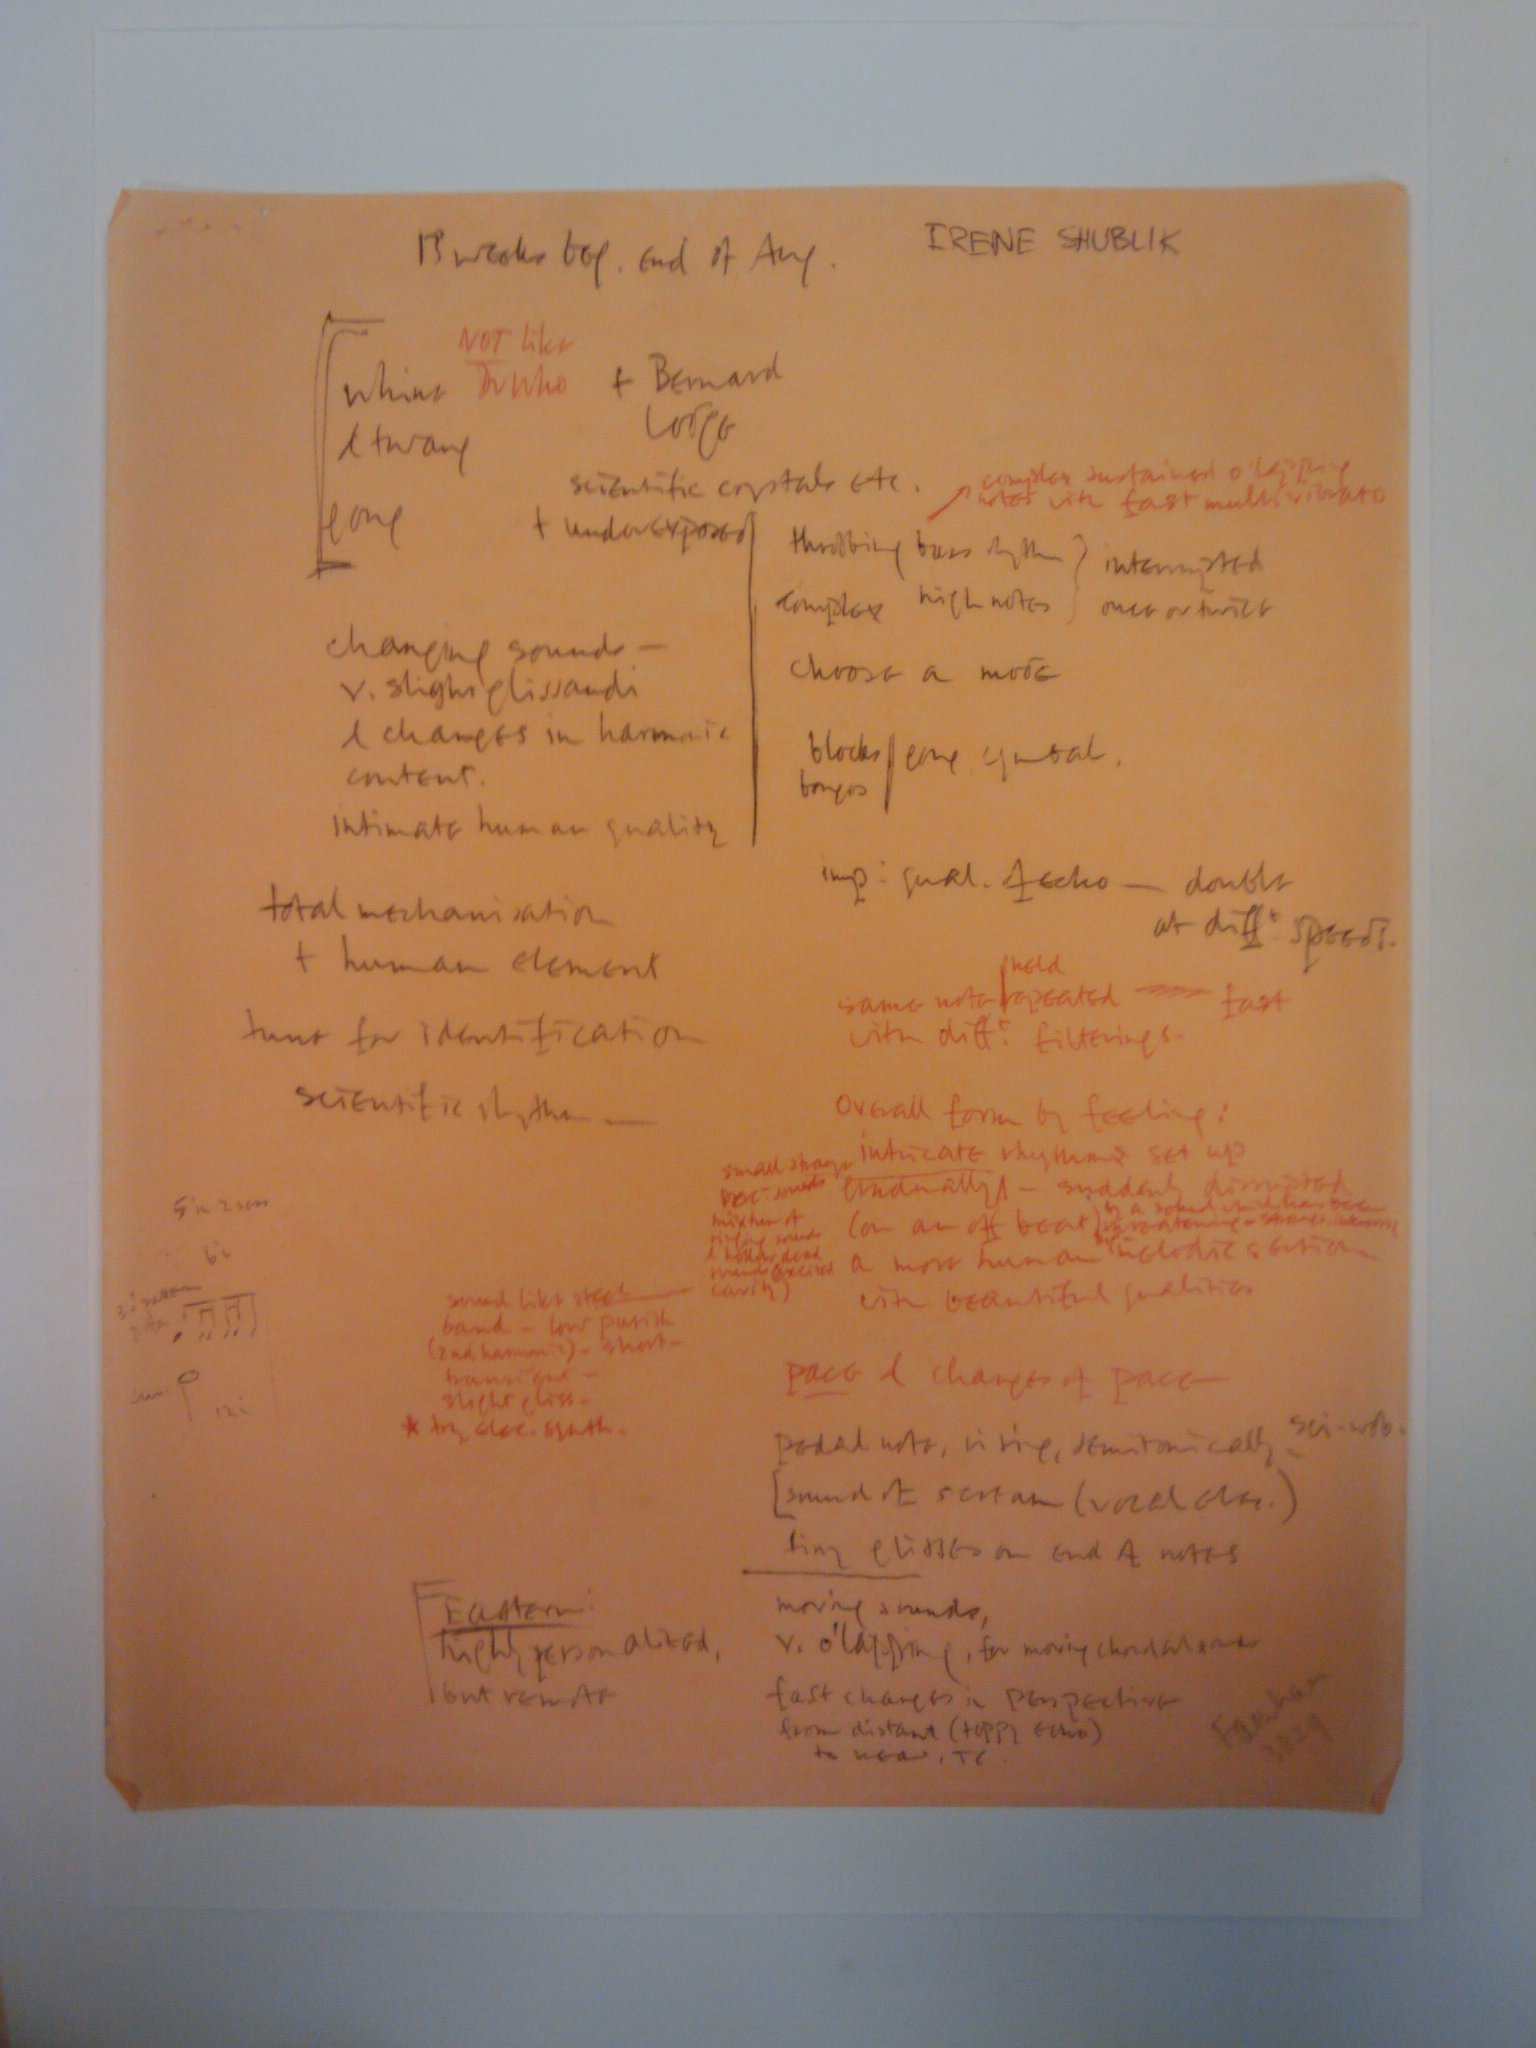 13 weeks beg. end of Aug.
IRENE SHUBLIK
NOT like
Dr Who
whine
& twang
gong
+ Bernard
Lodge
scientific crystals etc.
+ underexposed
complex sustained o'lapping
notes with fast multivibrato
throbbing bass rhythm
complex high notes
interrupted
once or twice
changing sounds —
v. slight glissandi
& changes in harmonic
content.
intimate human quality
choose a mode
blocks
bongos
gong, cymbal.
imp: qual. of echo — double
at difft. speeds.
total mechanisation
+ human element
tune for identification
scientific rhythm —
held
same note repeated fast
with difft. filterings.
Overall form by feeling:
intricate rhythms set up
gradually — suddenly disrupted
(on an off beat) by a sound which has been
threatening
a more human melodic section
with beautiful qualities
small strange
sounds
mixture of
ringing sounds
& hollow dead
sounds (excited
cavity)
sound like steel
band — low purish
(2nd harmonic) — short —
transient —
slight gliss.
* try elec. synth.
pace & changes of pace
pedal note, rising, semitonically
[sound of scream (vocal elec.)
tiny glisses on end of notes
Eastern
highly personalized,
but remote
moving sounds,
v. o'lapping, for moving chordal sounds
fast changes in perspective
from distant (toppy echo)
to near. TC
Farnham